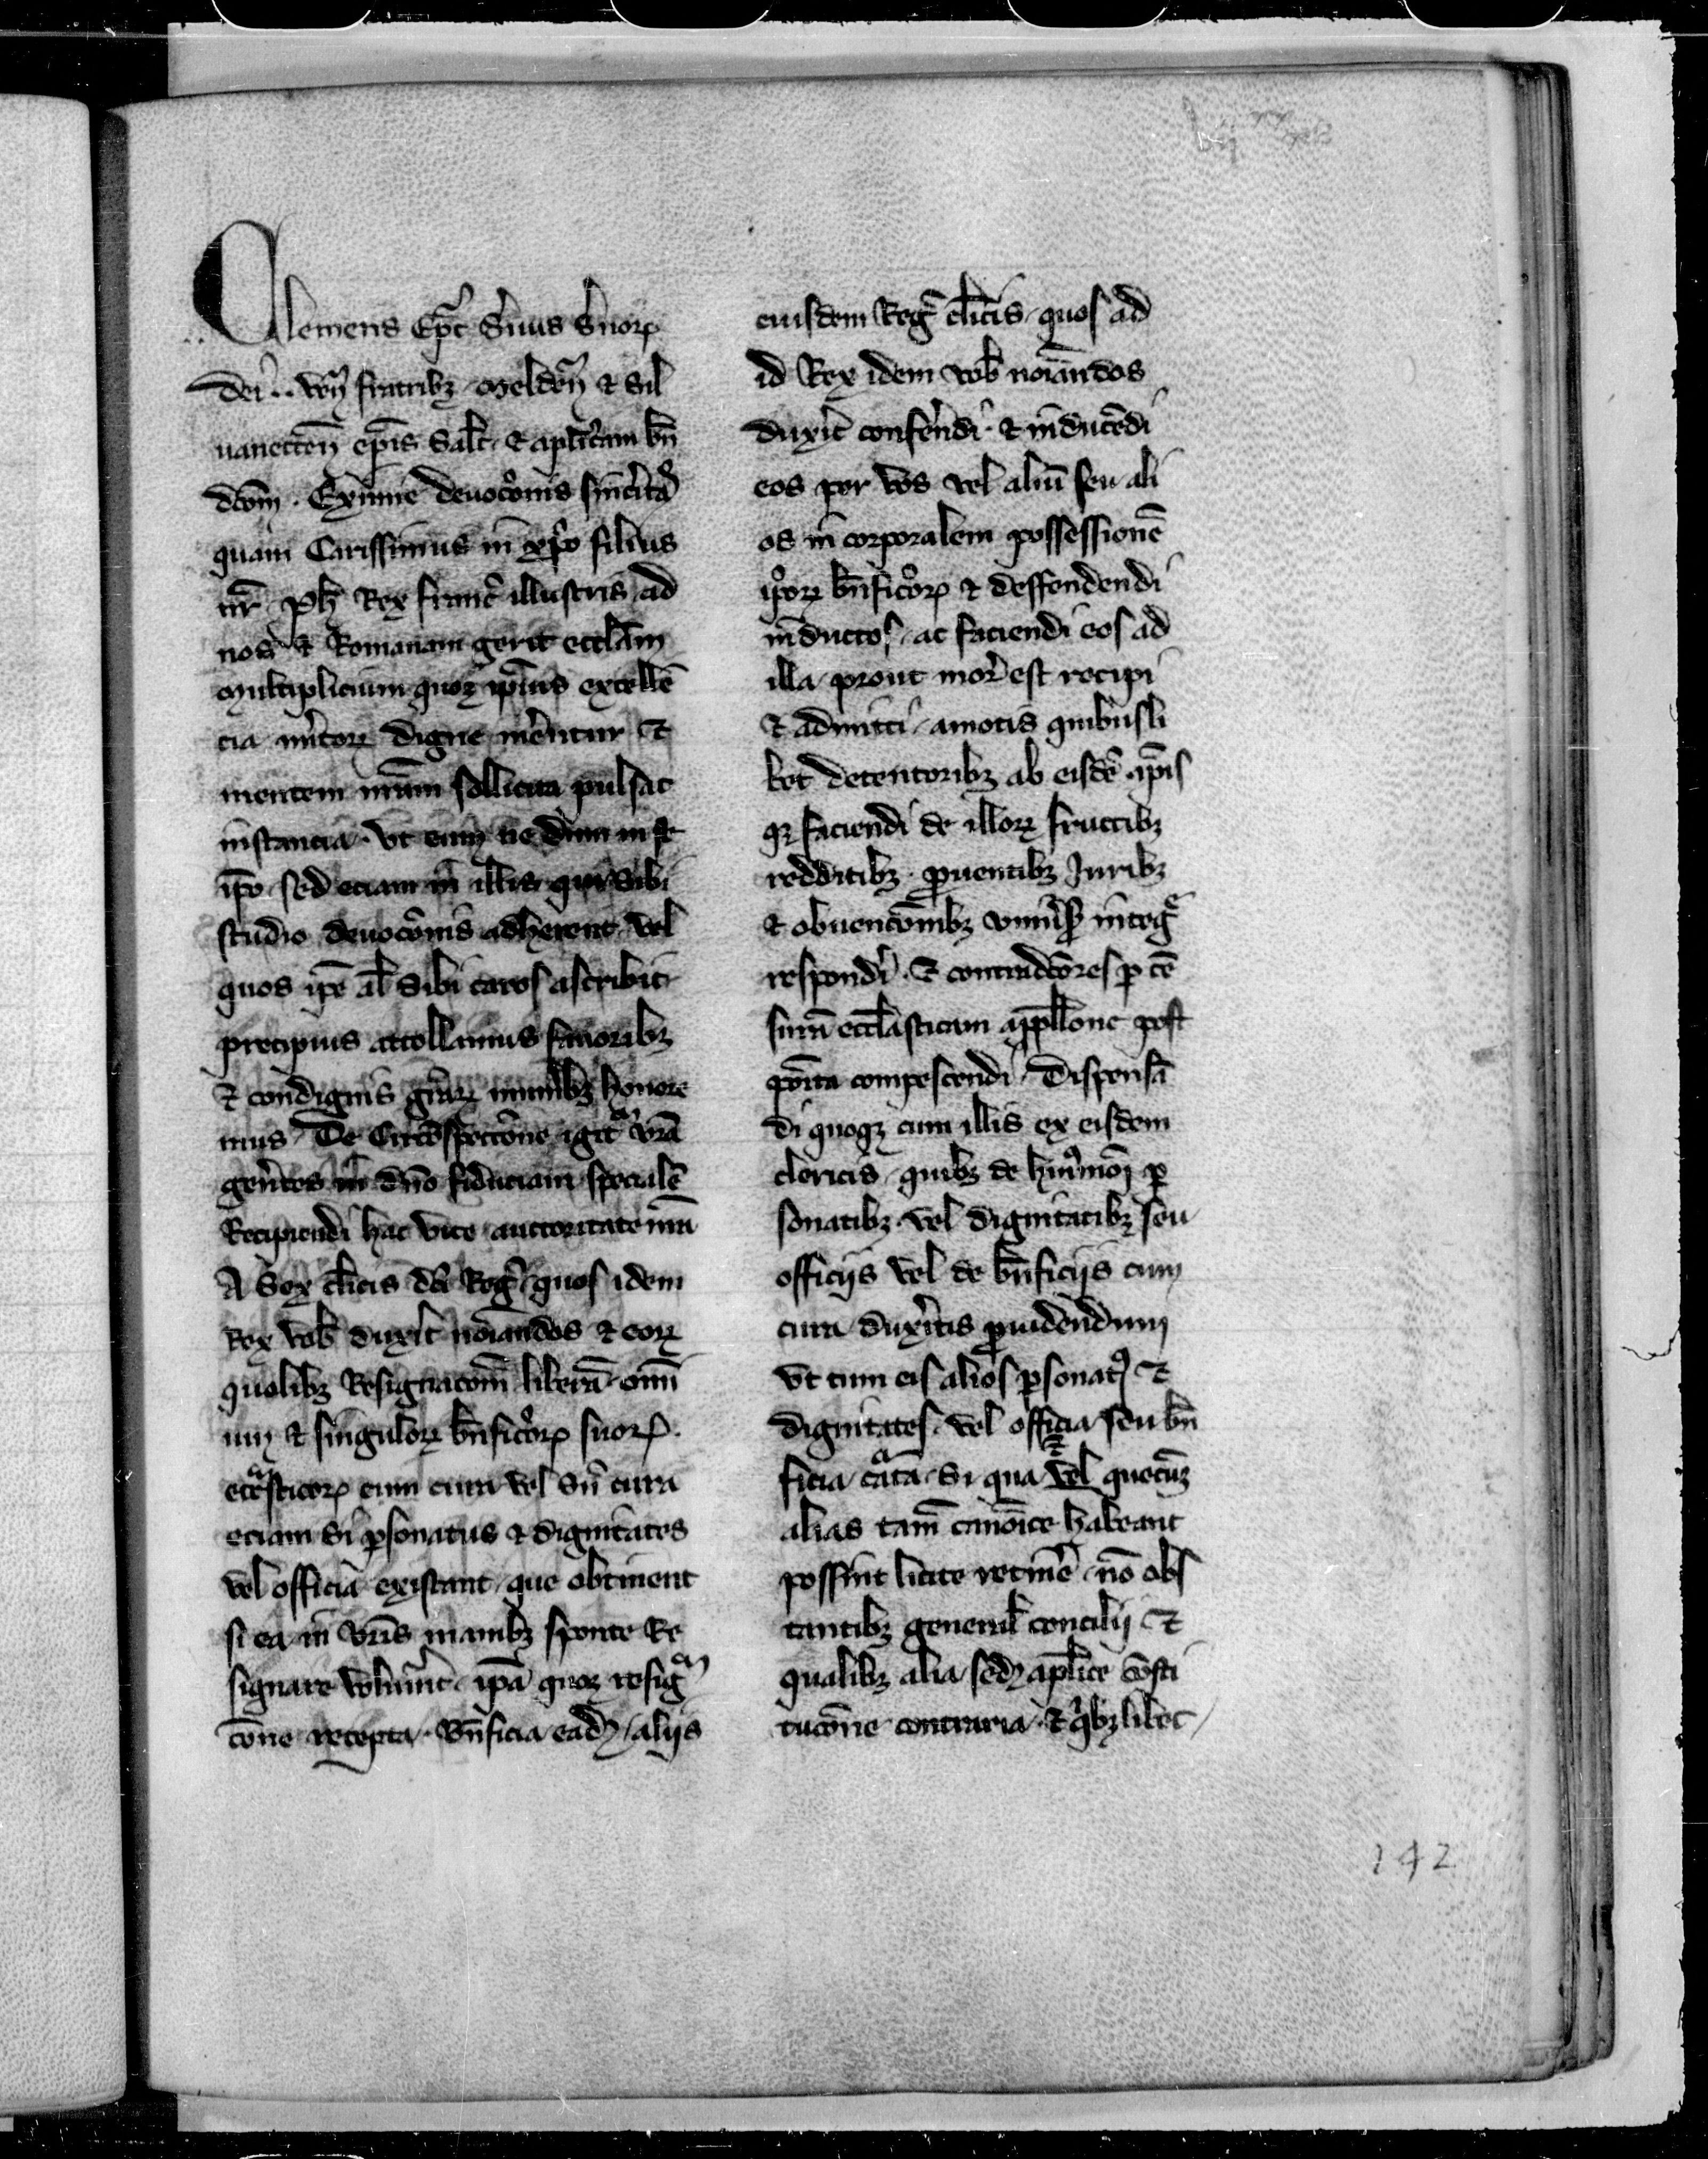 Clemens Ep̄c s̄uus s̄uorꝝ
dei .. ven̄ fratribꝫ Melden̄ ⁊ Sil
uanecten̄ ep̄is Sal̄t ⁊ ap̄licam bn̄
dcōm . Eximie deuoc̄onis sinc̄itas
quam Carissimus in xp̄o filius
nr̄ Ph̄ Rex franc̄ illustris ad
nos ⁊ Romanam gerit eccl̄iam
Multiplicium quoꝫ ip̄ius excellē
cia m̄itorꝝ digne m̄entur ⁊
mentem nr̄am sollicita pulsat
instancia . vt eum ne dum in se
ip̄o sed eciam in illis qui sibi
studio deuoc̄onis adherent vel
quos ip̄e al̄ sibi caros ascribit
precipuis attollamus fauoribꝫ
⁊ condignis gr̄arꝝ munībꝫ honore
mus . De Circūspectōne igit̄ vr̄a
gerētes in dn̄o fiduciam specialē
Recipiendi hac vice auctoritate nr̄a
A Sex cl̄icis dc̄i Reḡ quos idem
Rex vob̄ dux̄it no̅iandos ⁊ eorꝝ
quolibꝫ Resignac̄om̄ liberā om̄i
um ⁊ singulorꝝ bn̄ficiorꝝ suorꝝ .
ecc̄asticorꝝ cum cura vel sn̄ cura
eciam Si ꝑsonatus ⁊ dignitates
vel officia existant que obtinent
si ea in vr̄is manibꝫ sponte Re
signare volu̅int ip̄a quoꝫ resigᵃ
cōne recepta . Bn̄ficia eadꝫ aliis
eiusdem Reḡ cl̄icis quos ad
id Rex idem vob̄ no̅iandos
dux̄it conferēdi . ⁊ inducēdi
eos per vos vel aliū seu ali
os in corporalem possessionē
ip̄orꝝ bn̄ficiorꝝ ⁊ deffendendi
inductos . ac faciendi eos ad
illa prout mor̄ est recipi
⁊ admitti amotis quibusli
bet detentoribꝫ ab eisdē ip̄is
qꝫ faciendi de illorꝝ fructibꝫ
redditibꝫ . ꝓuentibꝫ Juribꝫ
⁊ obuencōnibꝫ vniūsis integᵉ
respond̄i . ⁊ contradcōres ꝑ cē
surā eccl̄asticam appll̄one post
pōita compescendi . Dispensā
di quoqꝫ cum illis ex eisdem
clericis quibꝫ de hui̅mōi ꝑ
sonatibꝫ . vel dignitatibꝫ seu
officijs vel de bn̄ficijs cum
cura dux̄itis ꝓuidendum
Vt cum eis alios ꝑsonatꝰ ⁊
dignitates vel officia seu bn̄
ficia cᵃata . Si qua ⁊ vel quecūꝫ
alias tam̄ canōice habeant
possint licite retin̄e . nō obs
tantibꝫ general̄ concilij ⁊
qualibꝫ alia sedꝫ apl̄ice ꝯsti
tucōne contraria . ⁊ qibꝫlibet
142